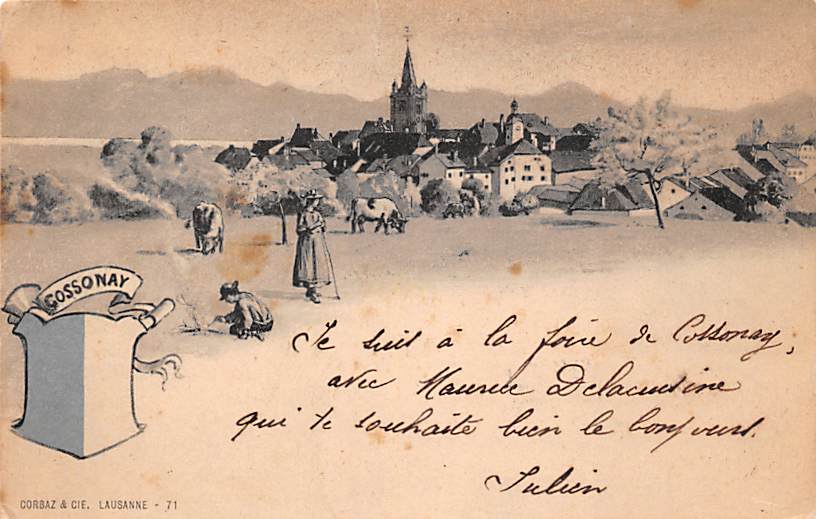 COSSONAY
Je suit à la foire de Cossonay,
avec Maurice Delacuisine
qui te souhaite bien le bonjours.
Julien
CORBAZ & CIE. LAUSANNE - 71